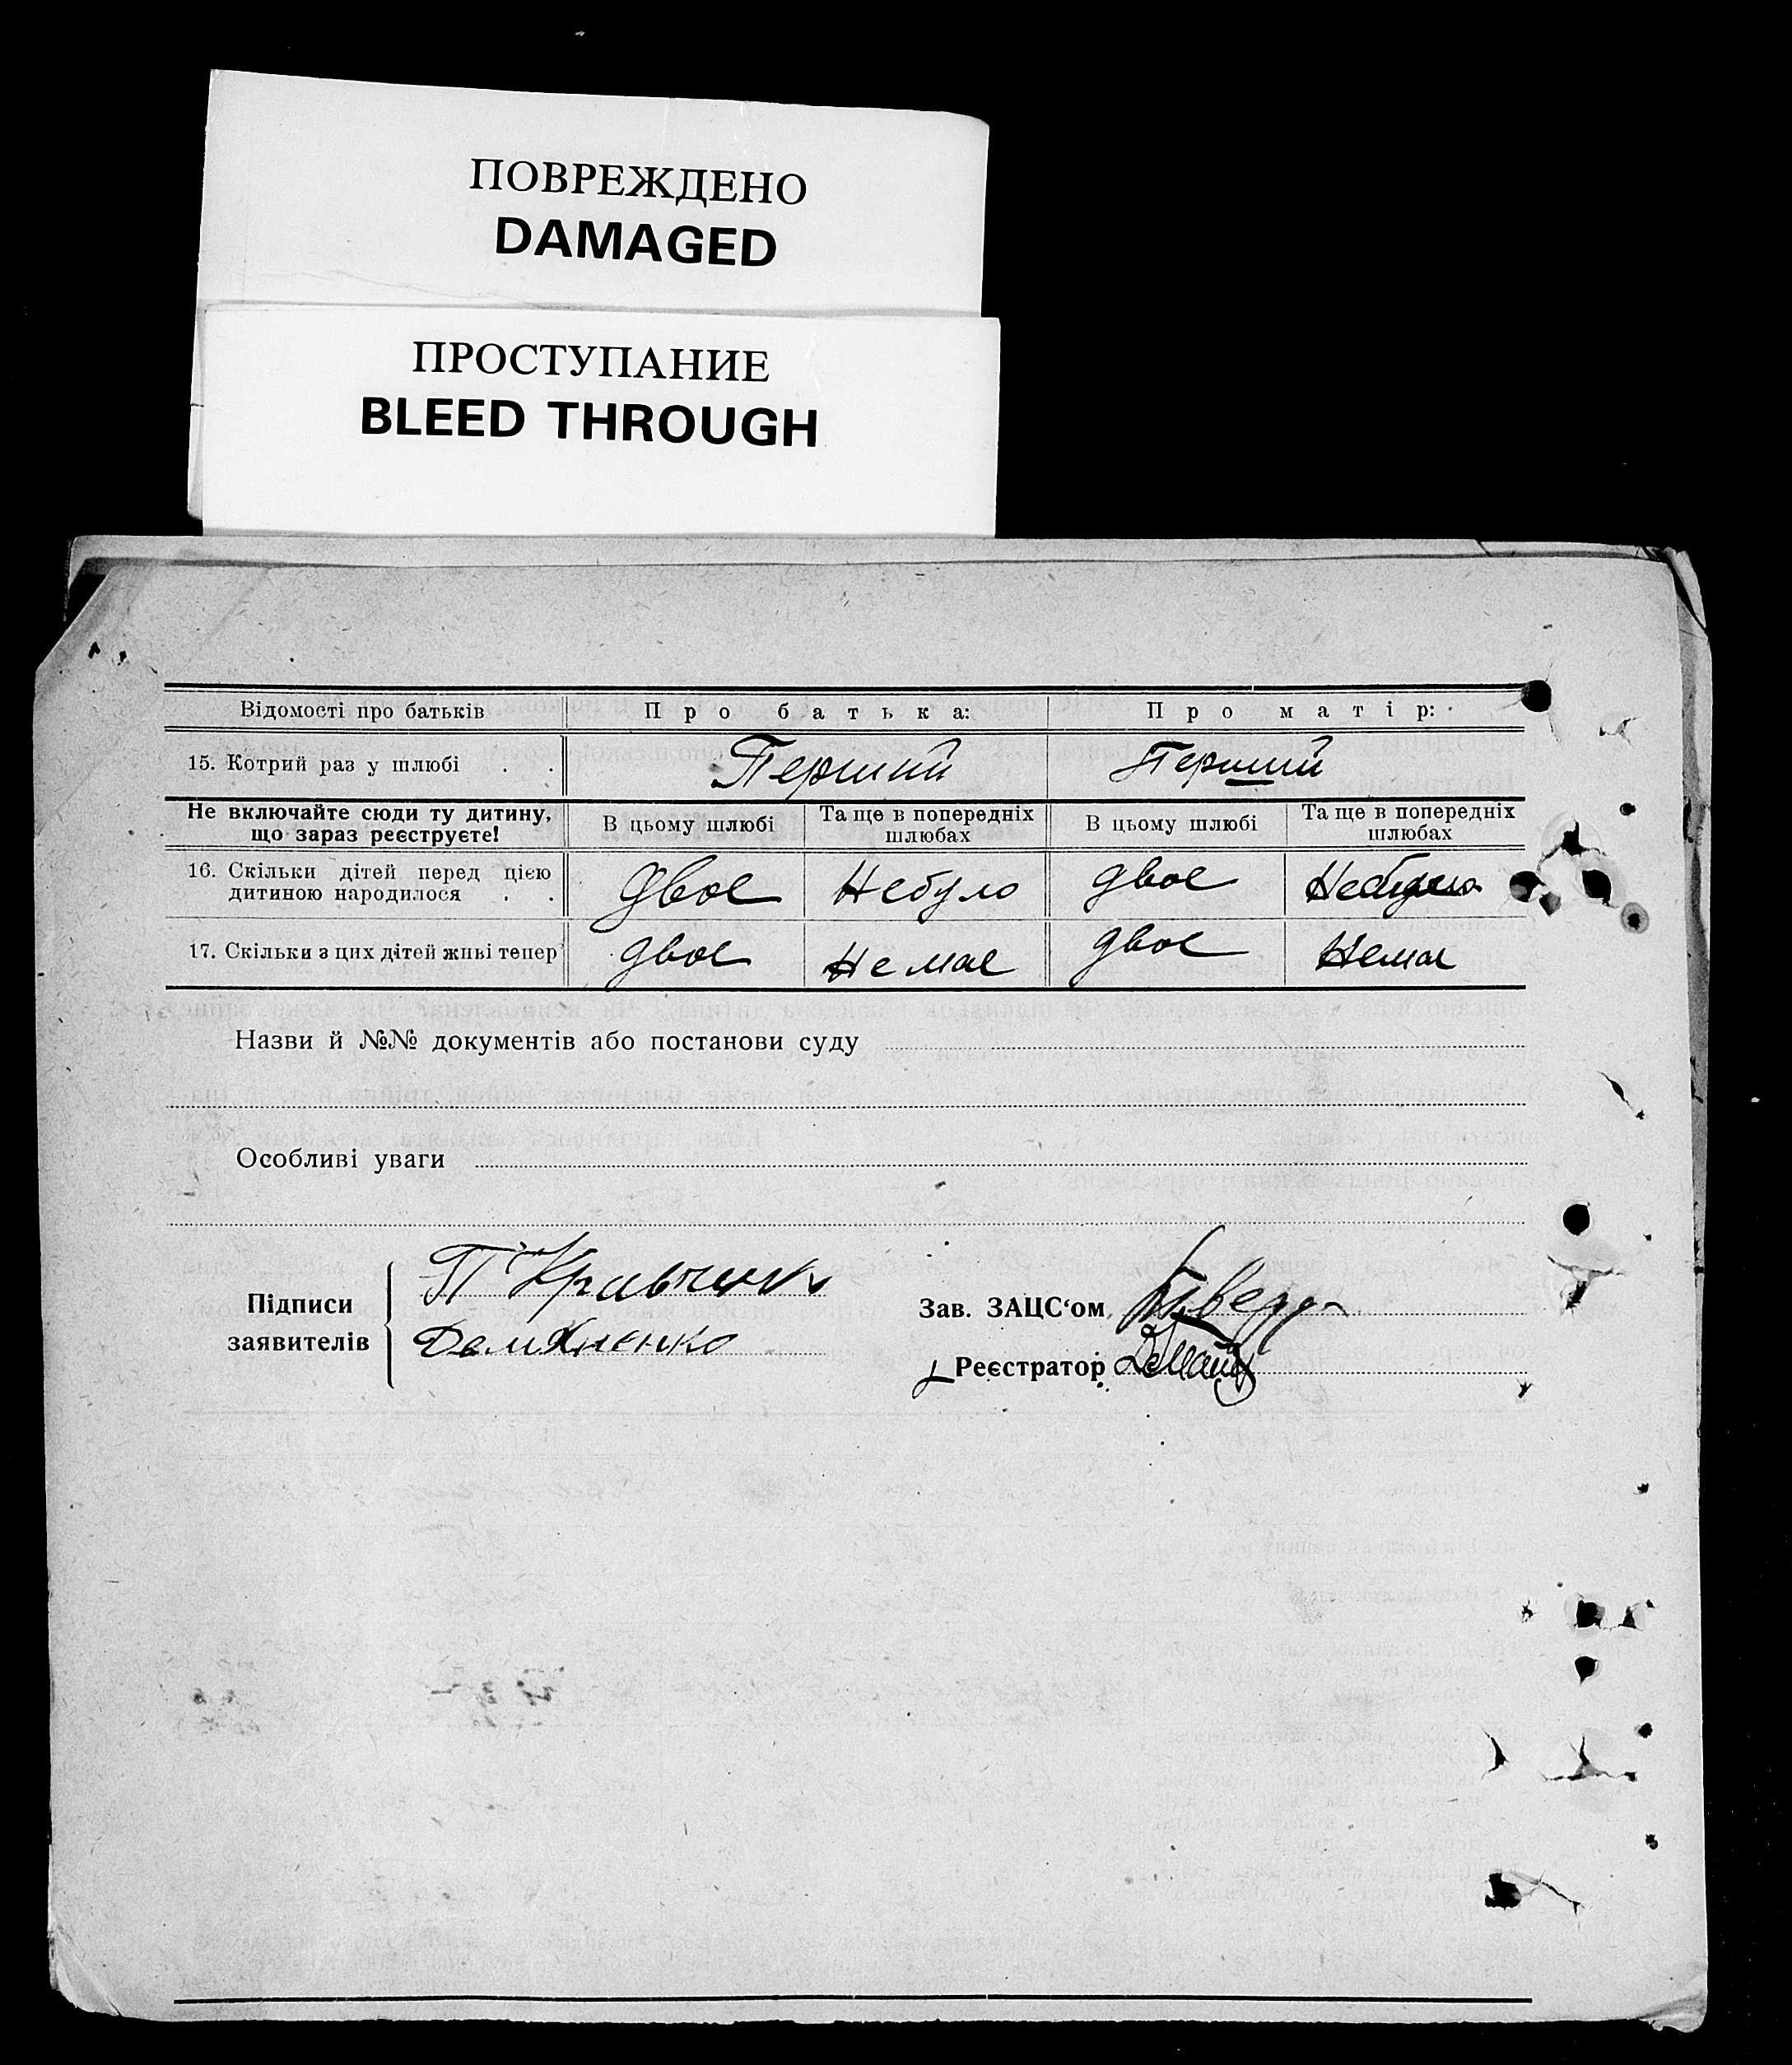 ПОВРЕЖДЕНО
DAMAGED
ПРОСТУПАНИЕ
BLEED THROUGH
Відомості про батьків Про батька: Про матір:
15. Котрий раз у шлюбі . . Перший Перший
Не включайте сюди ту дитину, що зараз реєструєте! В цьому шлюбі Та ще в попередніх шлюбах В цьому шлюбі Та ще в попередніх шлюбах
16. Скільки дітей перед цією дитиною народилося . . двоє Небуло двоє Небуло
17. Скільки з цих дітей живі тепер двоє Немає двоє Немає
Назви й №№ документів або постанови суду
Особливі уваги
Підписи заявителів
П Кравчик
Демяненко
Зав. ЗАЦС‘ом
Реєстратор